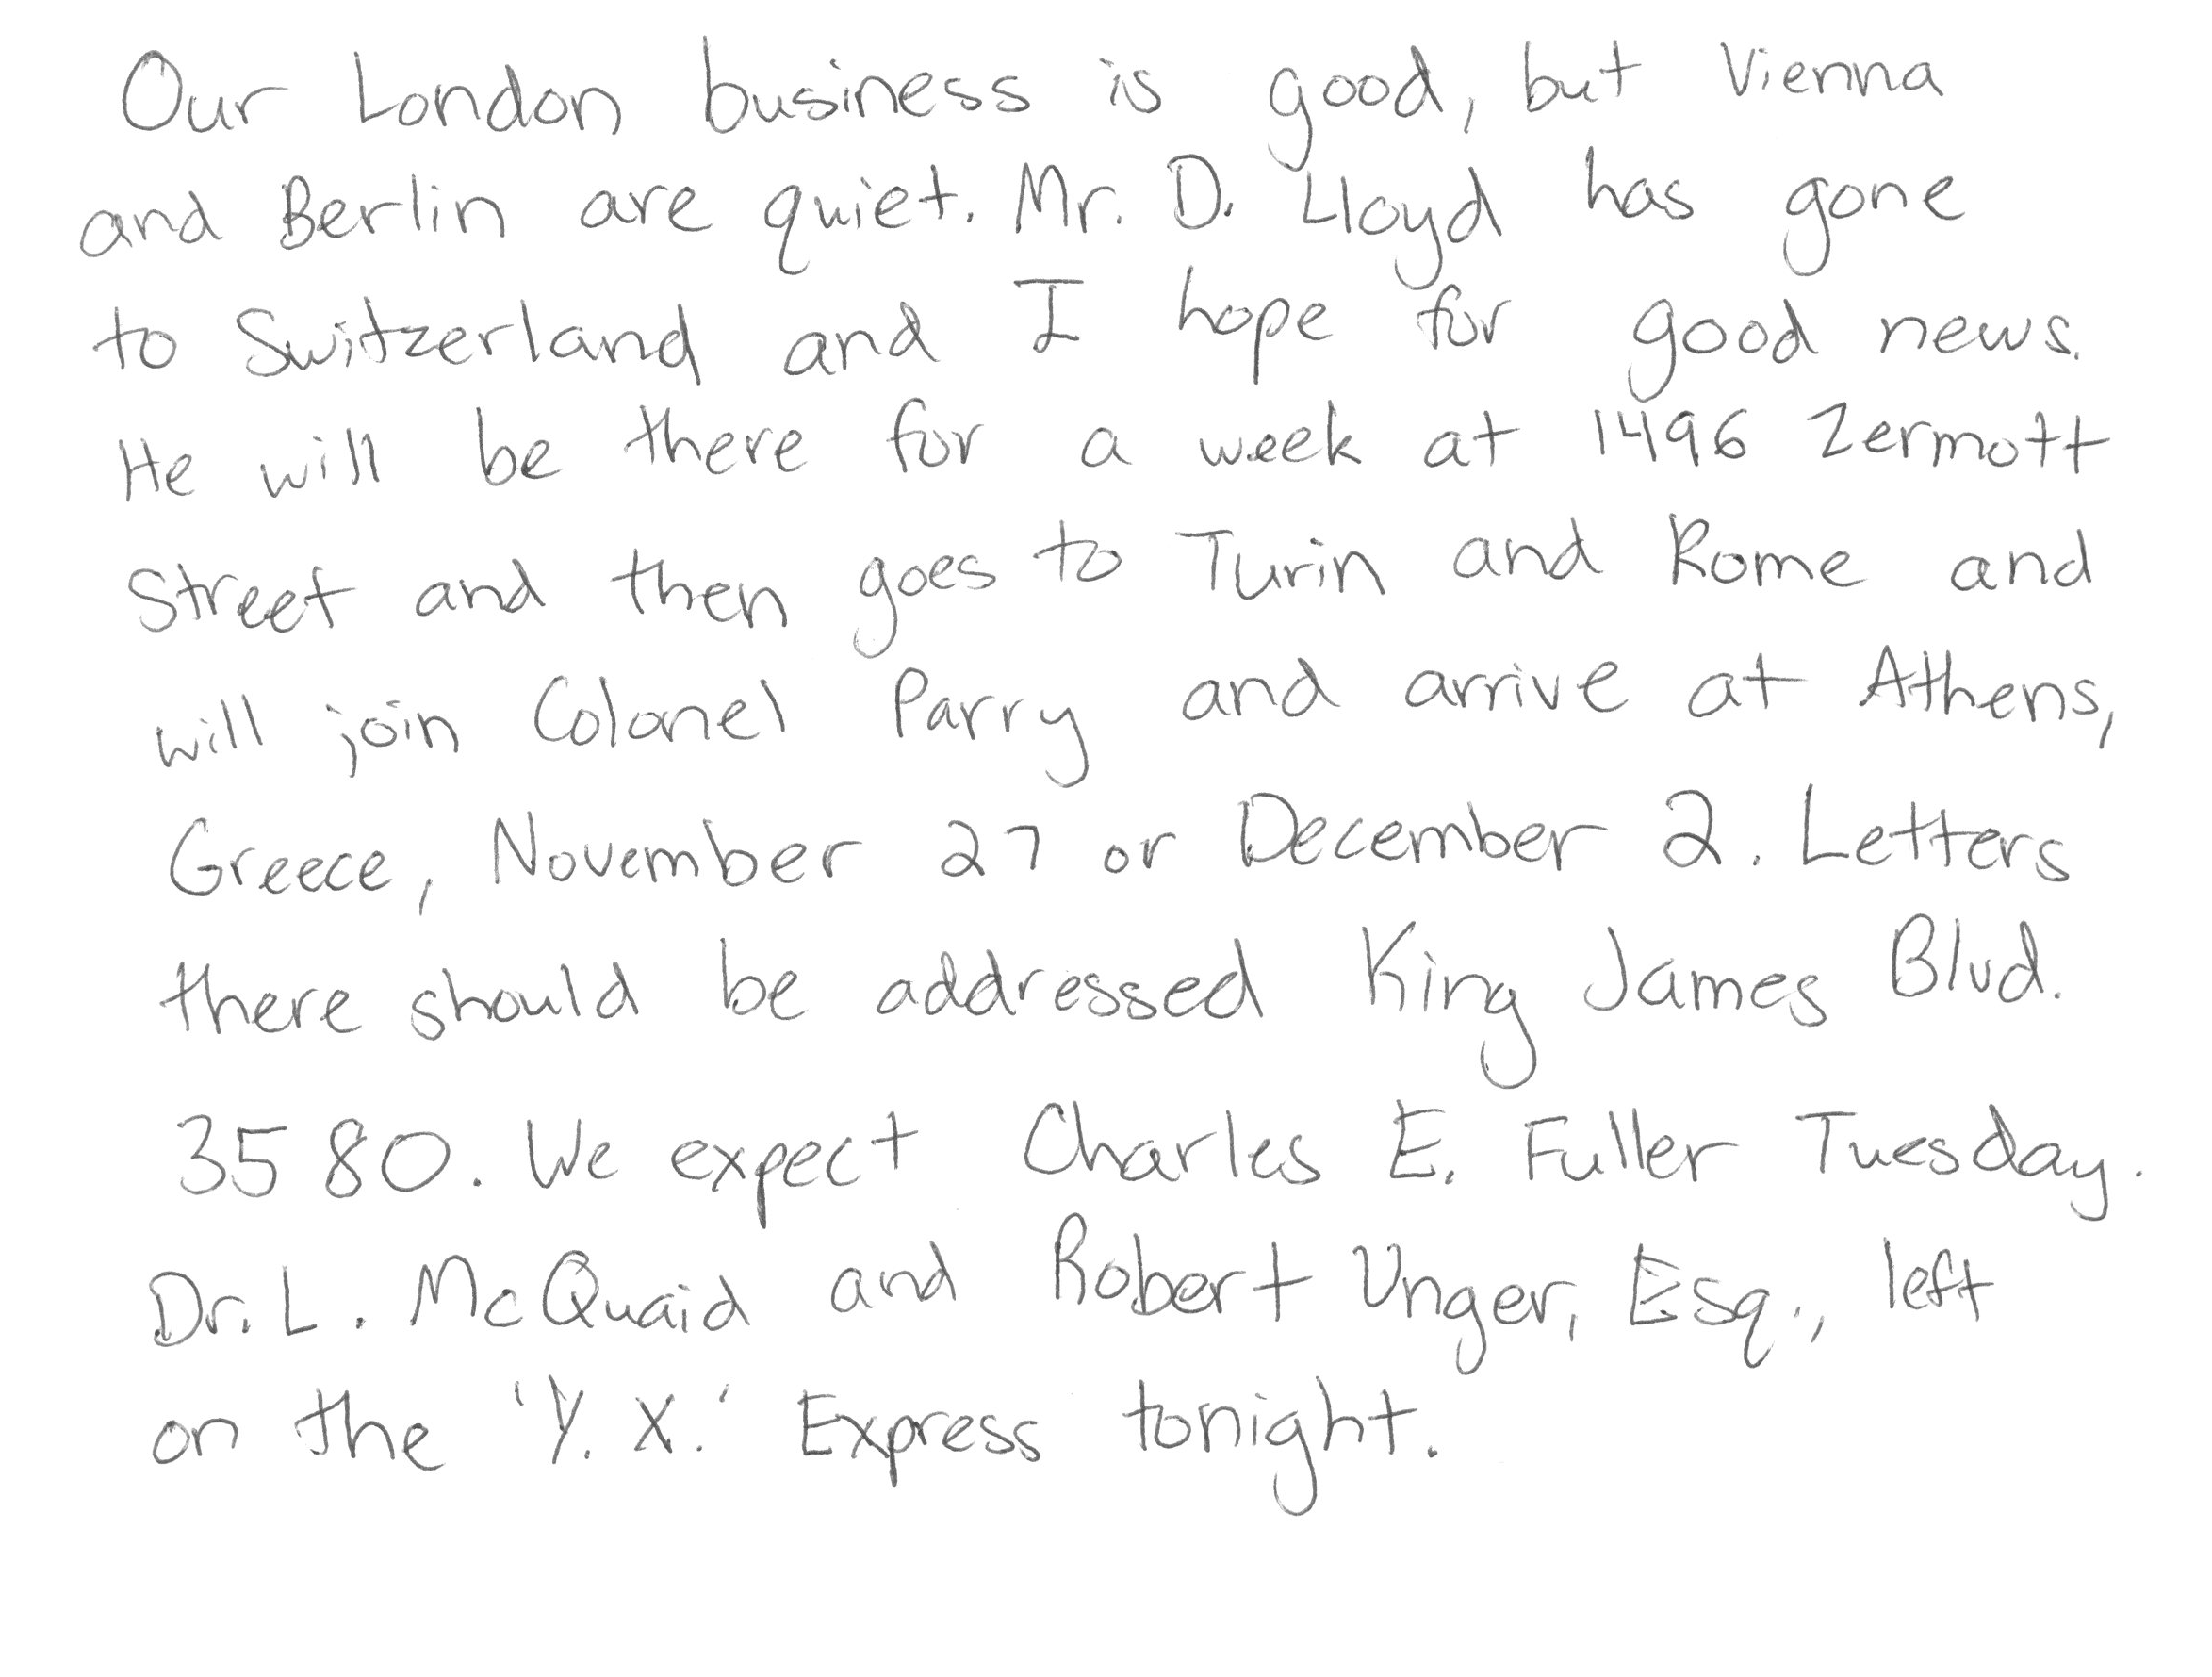 Our London business is good, but Vienna
and Berlin are quiet. Mr. D. Lloyd has gone
to Switzerland and I hope for good news.
He will be there for a week at 1496 Zermott
Street and then goes to Turin and Rome and
will join Colonel Parry and arrive at Athens,
Greece, November 27 or December 2. Letters
there should be addressed King James Blvd.
3580. We expect Charles E. Fuller Tuesday.
Dr. L. McQuaid and Robert Unger, Esq., left
on the 'Y. X.' Express tonight.